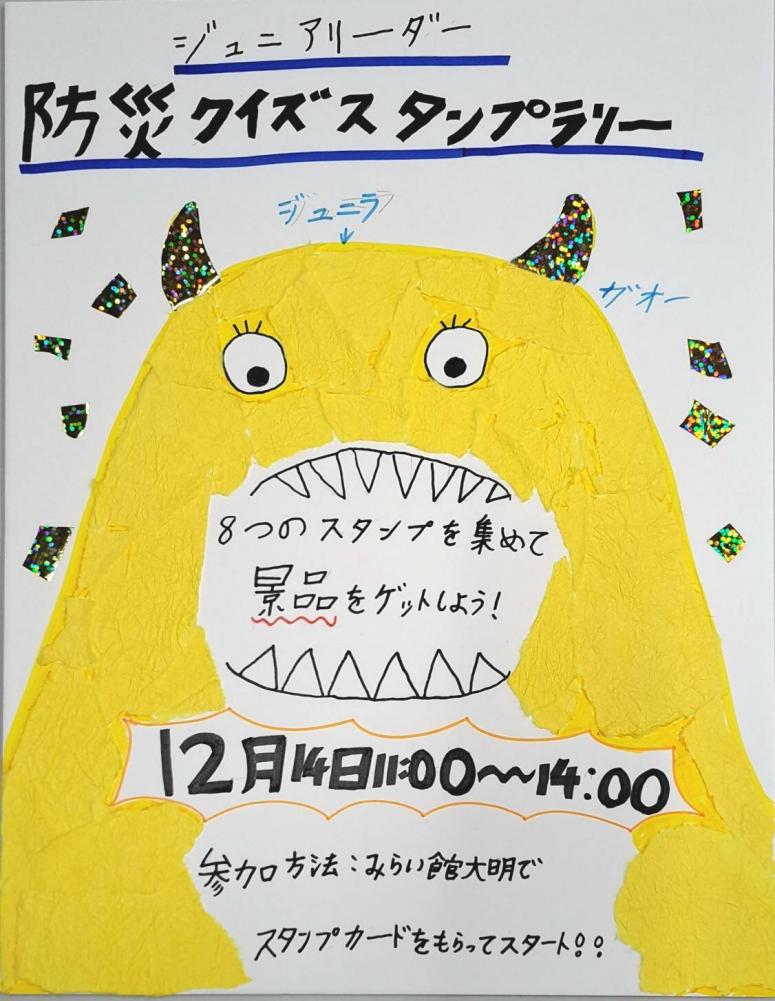 ジュニアリーダー
防災クイズスタンプラリー
ジュニラ
ガオー
8つのスタンプを集めて
景品をゲットしよう!
12月14日11:00〜14:00
参加方法:みらい館大明で
スタンプカードをもらってスタート!!